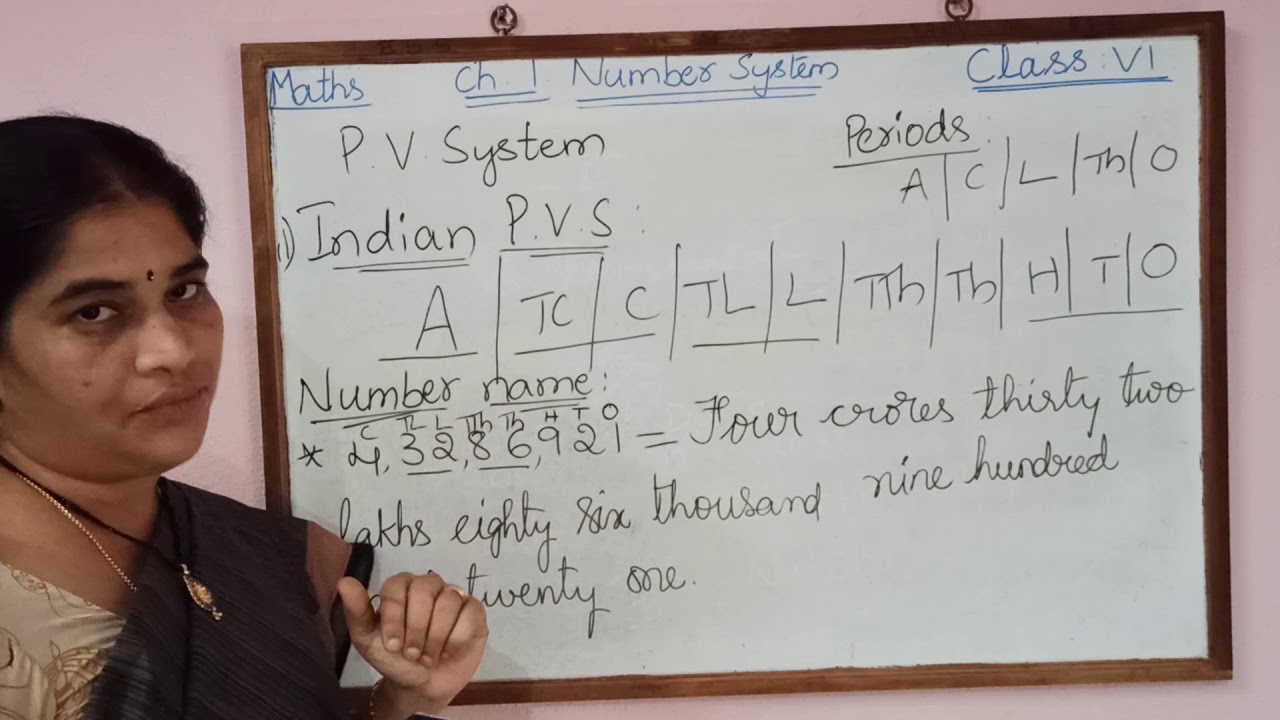 Maths Ch. 1 Number System Class: VI
P.V. System
Periods:
A | C | L | Th | O
i) Indian P.V.S:
A | TC | C | TL | L | TTh | Th | H | T | O
Number name:
C TL L TTh Th H T O
* 4,32,86,921 = Four crores thirty two
lakhs eighty six thousand nine hundred
twenty one.